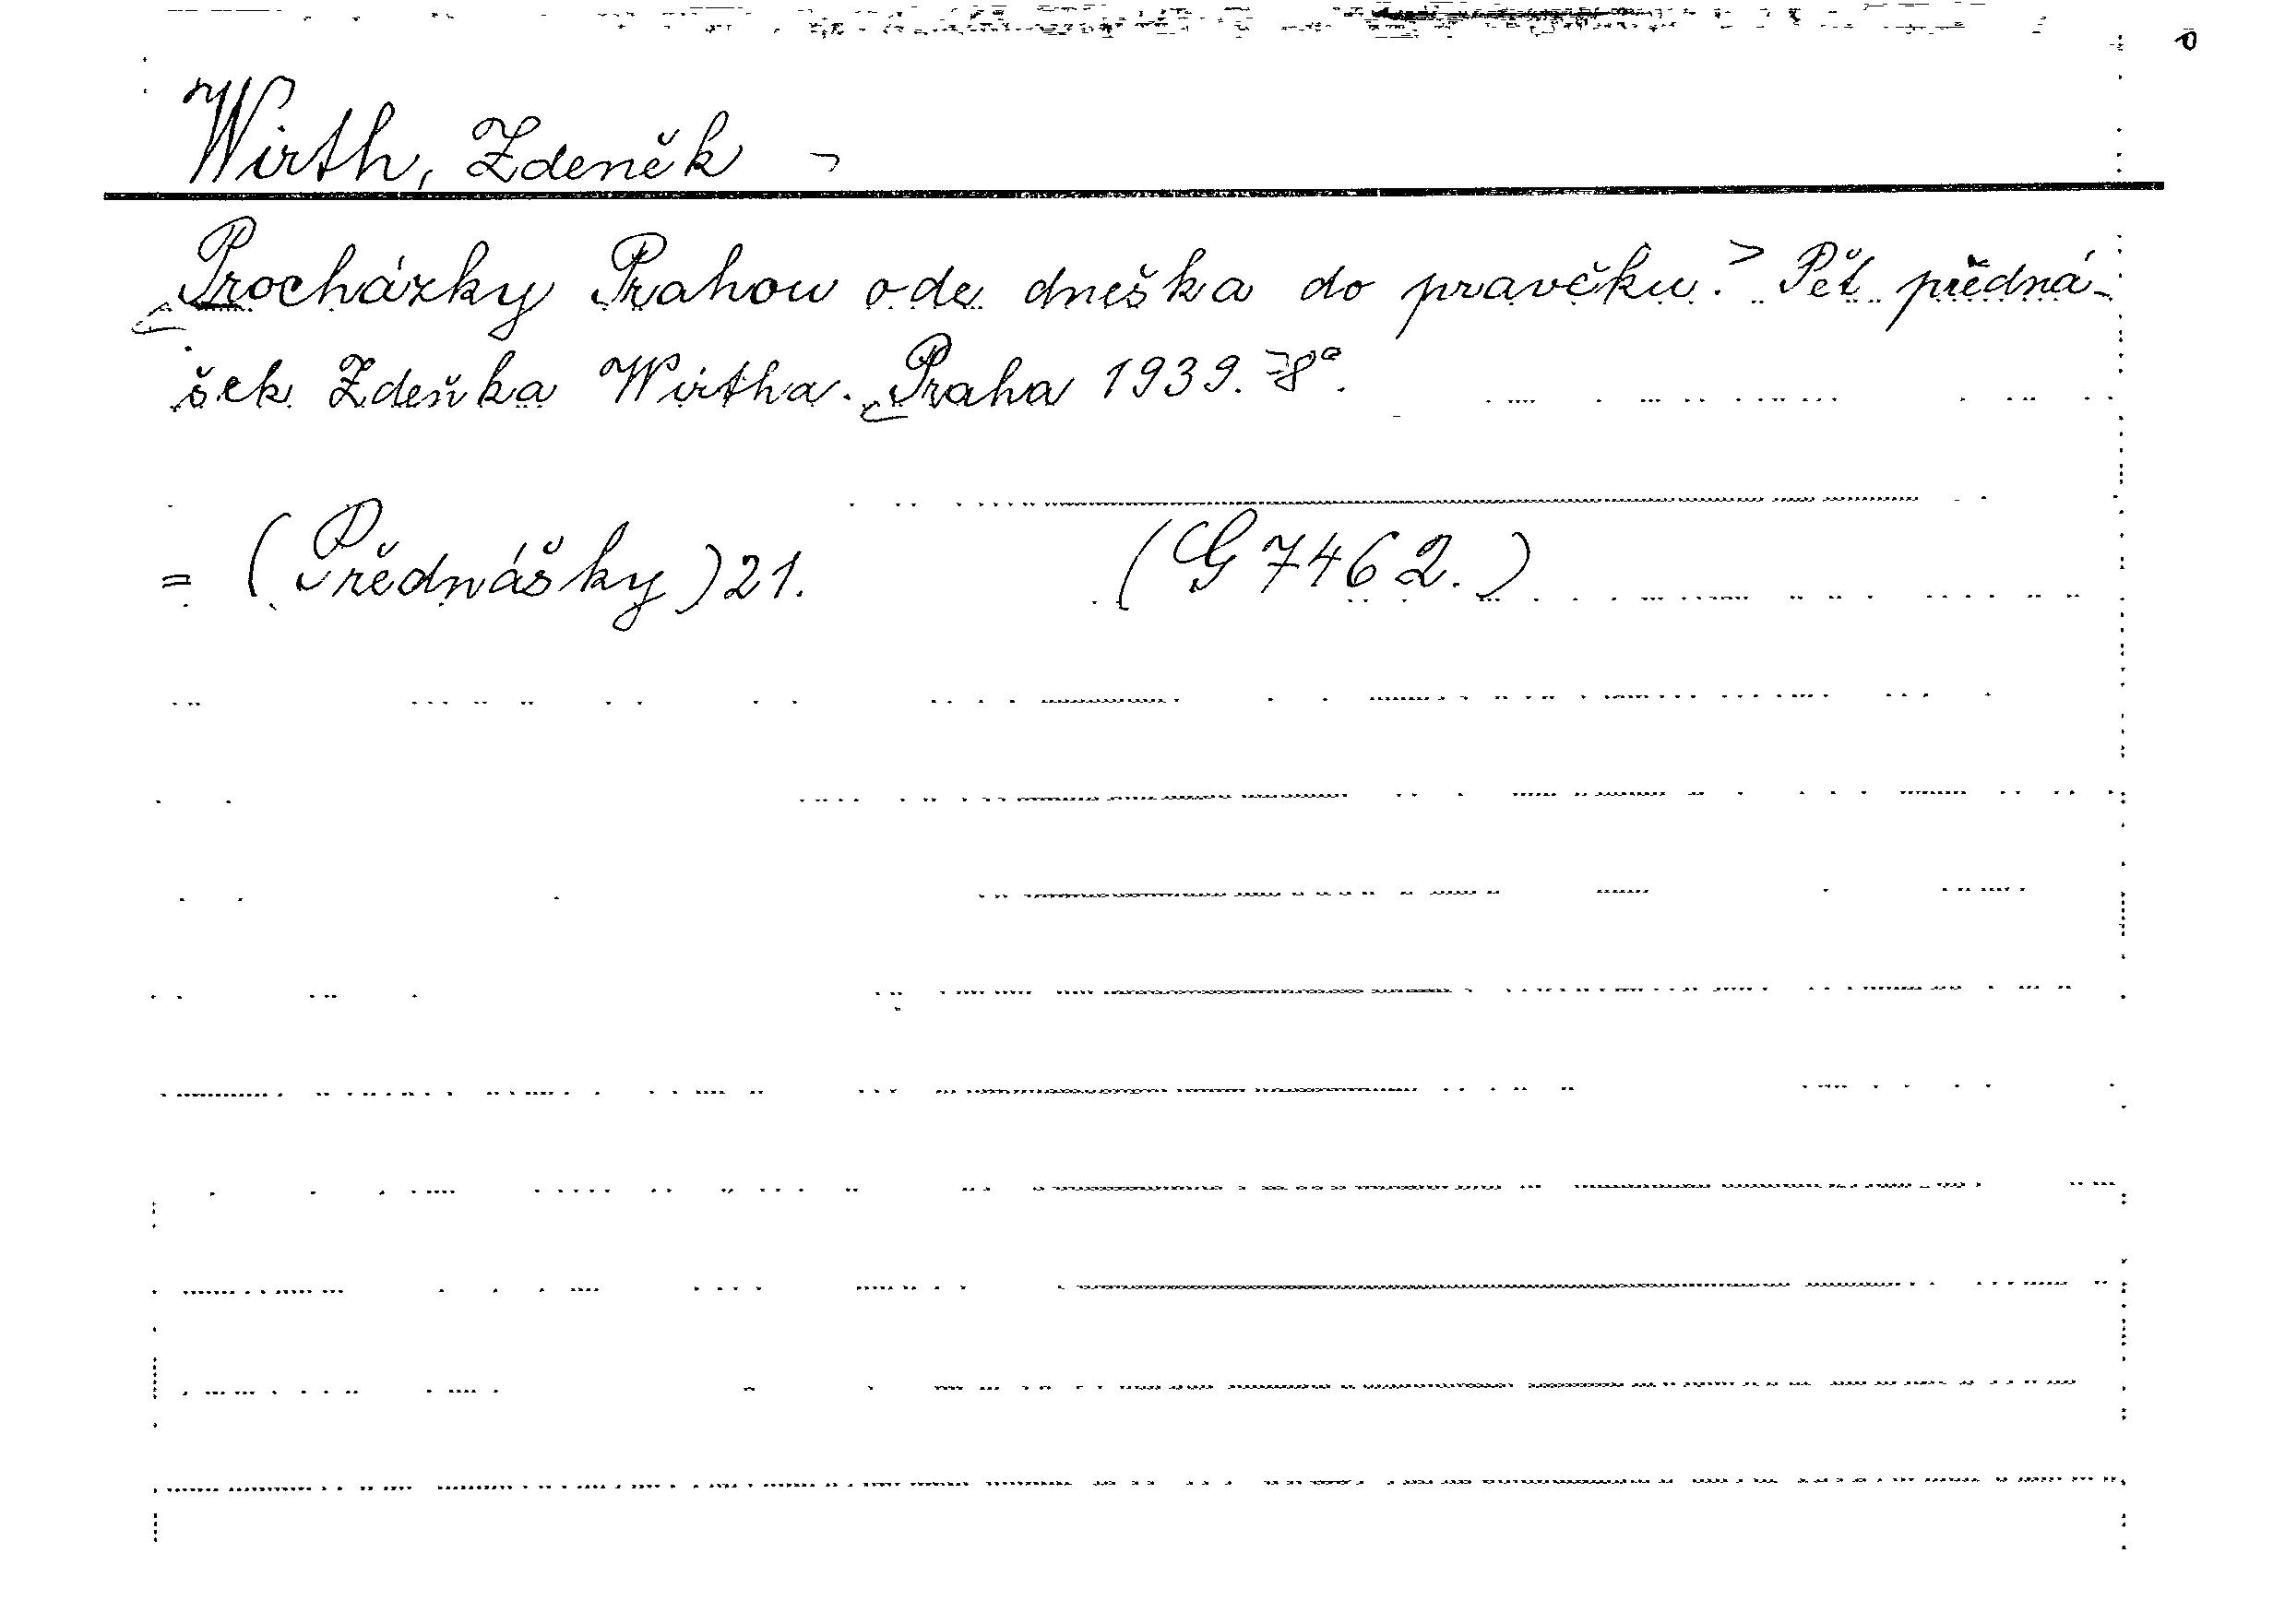 Wirth, Zdeněk
Procházky Prahou ode dneška do pravěku. Pět předná-
šek Zdeňka Wirtha. Praha 1939. 8°.
= (Přednášky) 21. (G 7462.)